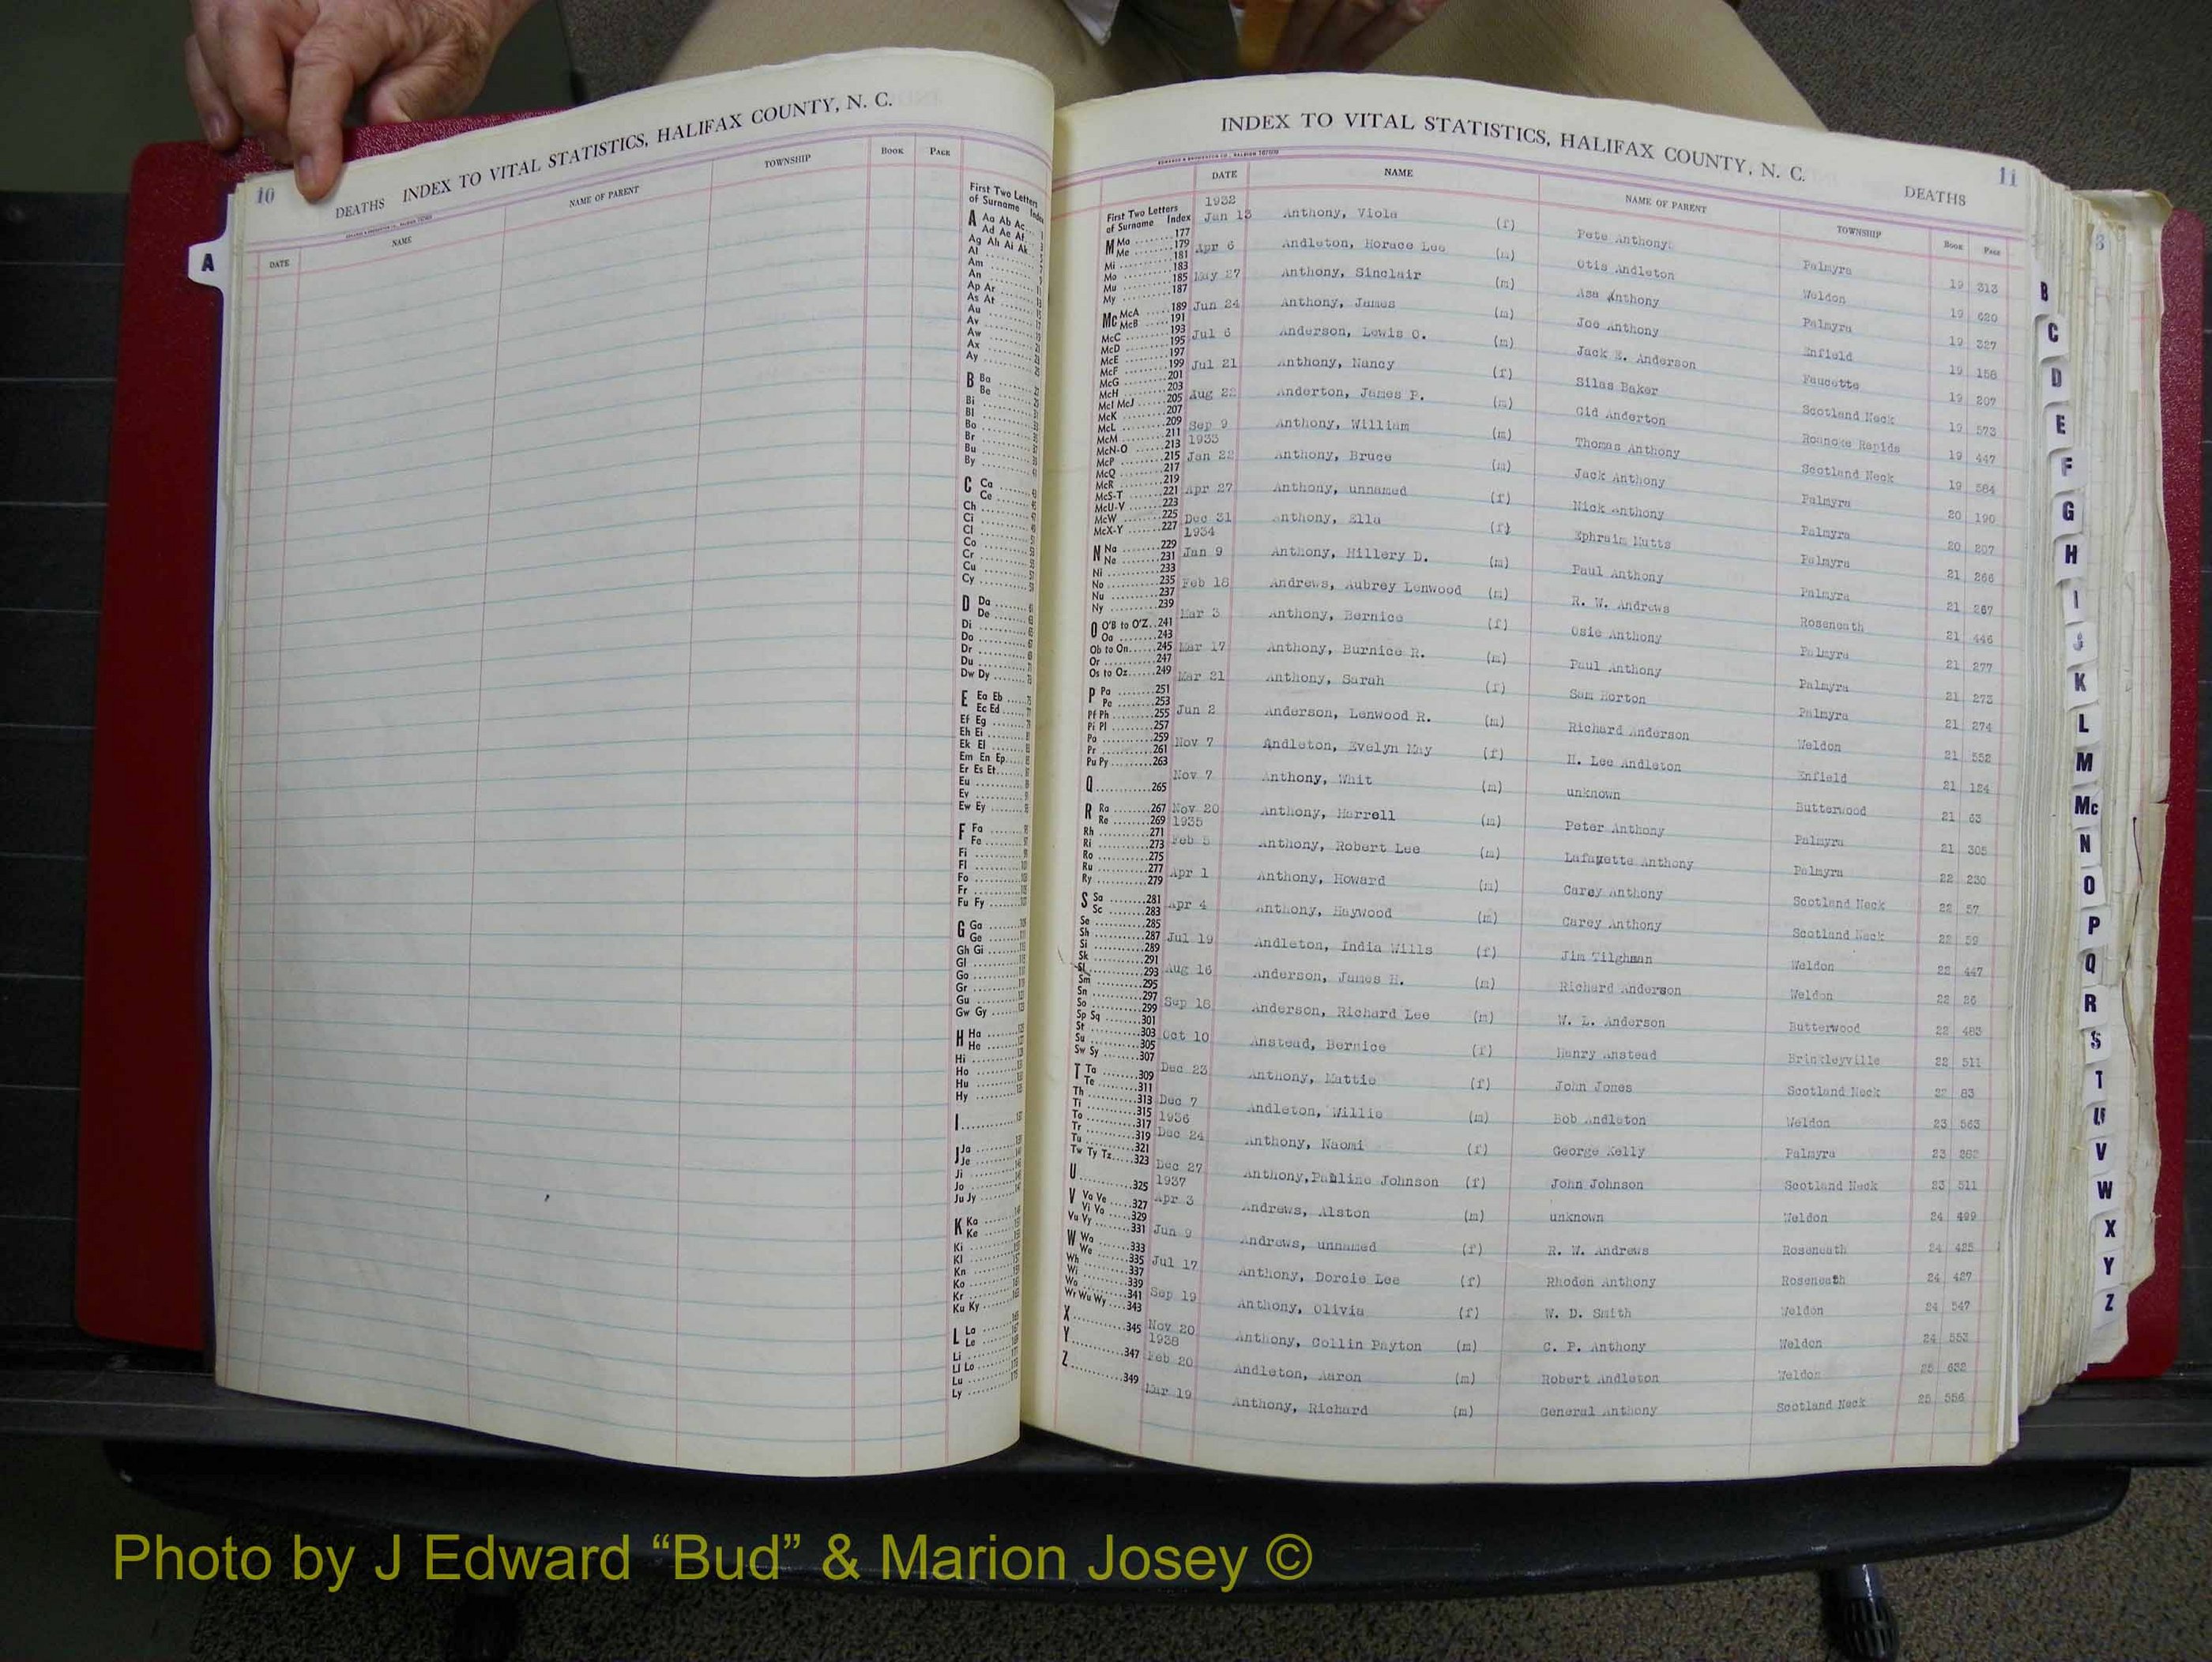 10
DEATHS INDEX TO VITAL STATISTICS, HALIFAX COUNTY, N. C.
DATE NAME NAME OF PARENT TOWNSHIP BOOK PAGE
A
First Two Letters
of Surname Index
A Aa Ab Ac
Ad Ae Af
Ag Ah Ai Ak
Al
Am
An
Ap Ar
As At
Au
Av
Aw
Ax
Ay
B Ba
Be
Bi
Bl
Bo
Br
Bu
By
C Ca
Ce
Ch
Ci
Cl
Co
Cr
Cu
Cy
D Da
De
Di
Do
Dr
Du
Dw Dy
E Ea Eb
Ec Ed
Ef Eg
Eh Ei
Ek El
Em En Ep
Er Es Et
Eu
Ev
Ew Ey
F Fa
Fe
Fi
Fl
Fo
Fr
Fu Fy
G Ga
Ge
Gh Gi
Gl
Go
Gr
Gu
Gw Gy
H Ha
He
Hi
Ho
Hu
Hy
I
J Ja
Je
Ji
Jo
Ju Jy
K Ka
Ke
Ki
Kl
Kn
Ko
Kr
Ku Ky
L La
Le
Li
Ll Lo
Lu
Ly
INDEX TO VITAL STATISTICS, HALIFAX COUNTY, N. C. DEATHS 11
DATE NAME NAME OF PARENT TOWNSHIP BOOK PAGE
First Two Letters
of Surname Index
M Ma 177
Me 179
Mi 181
Mo 183
Mu 185
My 187
Mc McA 189
McB 191
McC 193
McD 195
McE 197
McF 199
McG 201
McH 203
McI McJ 205
McK 207
McL 209
McM 211
McN-O 213
McP 215
McQ 217
McR 219
McS-T 221
McU-V 223
McW 225
McX-Y 227
N Na 229
Ne 231
Ni 233
No 235
Nu 237
Ny 239
O O'B to O'Z 241
Oa 243
Ob to On 245
Or 247
Os to Oz 249
P Pa 251
Pe 253
Pf Ph 255
Pi Pl 257
Po 259
Pr 261
Pu Py 263
Q 265
R Ra 267
Re 269
Rh 271
Ri 273
Ro 275
Ru 277
Ry 279
S Sa 281
Sc 283
Se 285
Sh 287
Si 289
Sk 291
Sl 293
Sm 295
Sn 297
So 299
Sp Sq 301
St 303
Su 305
Sw Sy 307
T Ta 309
Te 311
Th 313
Ti 315
To 317
Tr 319
Tu 321
Tw Ty Tz 323
U 325
V Va Ve 327
Vi Vo 329
Vu Vy 331
W Wa 333
We 335
Wh 337
Wi 339
Wo 341
Wr Wu Wy 343
X 345
Y 347
Z 349
1932
Jan 13 Anthony, Viola (f) Pete Anthony Palmyra 19 313
Apr 6 Andleton, Horace Lee (m) Otis Andleton Weldon 19 620
May 27 Anthony, Sinclair (m) Asa Anthony Palmyra 19 327
Jun 24 Anthony, James (m) Joe Anthony Enfield 19 156
Jul 6 Anderson, Lewis O. (m) Jack E. Anderson Faucette 19 207
Jul 21 Anthony, Nancy (f) Silas Baker Scotland Neck 19 573
Aug 22 Anderton, James P. (m) Gid Anderton Roanoke Rapids 19 447
Sep 9 Anthony, William (m) Thomas Anthony Scotland Neck 19 564
1933
Jan 22 Anthony, Bruce (m) Jack Anthony Palmyra 20 190
Apr 27 Anthony, unnamed (f) Nick Anthony Palmyra 20 207
Dec 31 Anthony, Ella (f) Ephraim Mutts Palmyra 21 266
1934
Jan 9 Anthony, Hillery D. (m) Paul Anthony Palmyra 21 267
Feb 18 Andrews, Aubrey Lenwood (m) R. W. Andrews Roseneath 21 446
Mar 3 Anthony, Bernice (f) Osie Anthony Palmyra 21 277
Mar 17 Anthony, Burnice R. (m) Paul Anthony Palmyra 21 273
Mar 21 Anthony, Sarah (f) Sam Horton Palmyra 21 274
Jun 2 Anderson, Lenwood R. (m) Richard Anderson Weldon 21 552
Nov 7 Andleton, Evelyn May (f) H. Lee Andleton Enfield 21 124
Nov 7 Anthony, Whit (m) unknown Butterwood 21 63
Nov 20 Anthony, Harrell (m) Peter Anthony Palmyra 21 305
1935
Feb 5 Anthony, Robert Lee (m) Lafayette Anthony Palmyra 22 230
Apr 1 Anthony, Howard (m) Carey Anthony Scotland Neck 22 57
Apr 4 Anthony, Haywood (m) Carey Anthony Scotland Neck 22 59
Jul 19 Andleton, India Wills (f) Jim Tilghman Weldon 22 447
Aug 16 Anderson, James H. (m) Richard Anderson Weldon 22 26
Sep 18 Anderson, Richard Lee (m) W. L. Anderson Butterwood 22 483
Oct 10 Anstead, Bernice (f) Henry Anstead Brinkleyville 22 511
Dec 23 Anthony, Mattie (f) John Jones Scotland Neck 22 83
Dec 7 Andleton, Willie (m) Bob Andleton Weldon 23 563
1936
Dec 24 Anthony, Naomi (f) George Kelly Palmyra 23 262
Dec 27 Anthony,Pauline Johnson (f) John Johnson Scotland Neck 23 511
1937
Apr 3 Andrews, Alston (m) unknown Weldon 24 499
Jun 9 Andrews, unnamed (f) R. W. Andrews Roseneath 24 425
Jul 17 Anthony, Dorcie Lee (f) Rhoden Anthony Roseneath 24 427
Sep 19 Anthony, Olivia (f) W. D. Smith Weldon 24 547
Nov 20 Anthony, Collin Payton (m) C. P. Anthony Weldon 24 553
1938
Feb 20 Andleton, Aaron (m) Robert Andleton Weldon 25 632
Mar 19 Anthony, Richard (m) General Anthony Scotland Neck 25 556
B
C
D
E
F
G
H
I
J
K
L
M
Mc
N
O
P
Q
R
S
T
U
V
W
X
Y
Z
Photo by J Edward “Bud” & Marion Josey ©